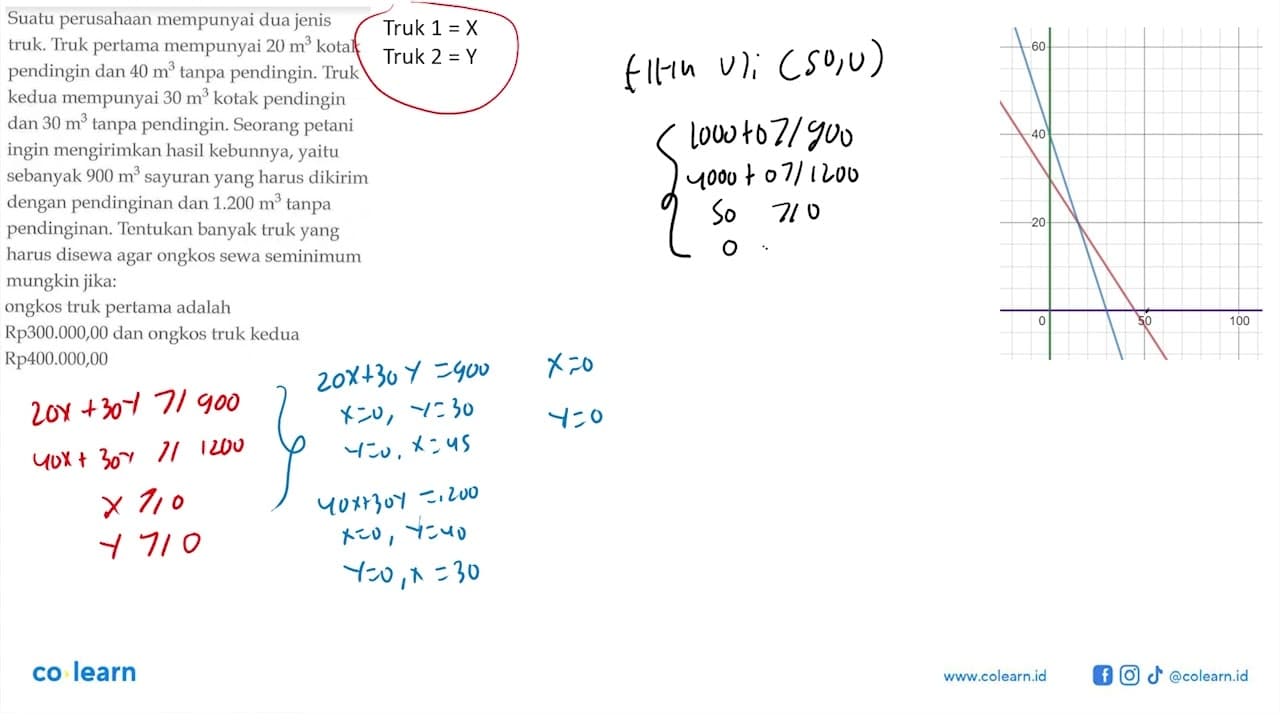 Suatu perusahaan mempunyai dua jenis
truk. Truk pertama mempunyai 20 m³ kotak
pendingin dan 40 m³ tanpa pendingin. Truk
kedua mempunyai 30 m³ kotak pendingin
dan 30 m³ tanpa pendingin. Seorang petani
ingin mengirimkan hasil kebunnya, yaitu
sebanyak 900 m³ sayuran yang harus dikirim
dengan pendinginan dan 1.200 m³ tanpa
pendinginan. Tentukan banyak truk yang
harus disewa agar ongkos sewa seminimum
mungkin jika:
ongkos truk pertama adalah
Rp300.000,00 dan ongkos truk kedua
Rp400.000,00
Truk 1 = X
Truk 2 = Y
20x + 30y ≥ 900
40x + 30y ≥ 1200
x ≥ 0
y ≥ 0
20x + 30y = 900
x=0, y=30
y=0, x=45
40x+30y = 1200
x=0, y=40
y=0, x=30
x=0
y=0
(50,0)
1000+0 ≥ 900
4000+0 ≥ 1200
50 ≥ 0
0
60
40
20
0
50
100
co learn
www.colearn.id
@colearn.id